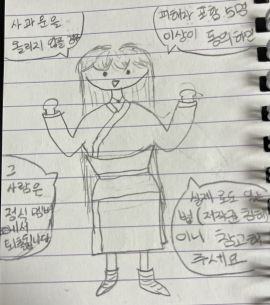 사과문을
올리지 않을 경우
피해자 포함 5명
이상이 동의하면
그
사람은
정식 멤버
에서
퇴출됩니다
실제로도 있는
법 (저작권 침해
이니 참고해
주세요